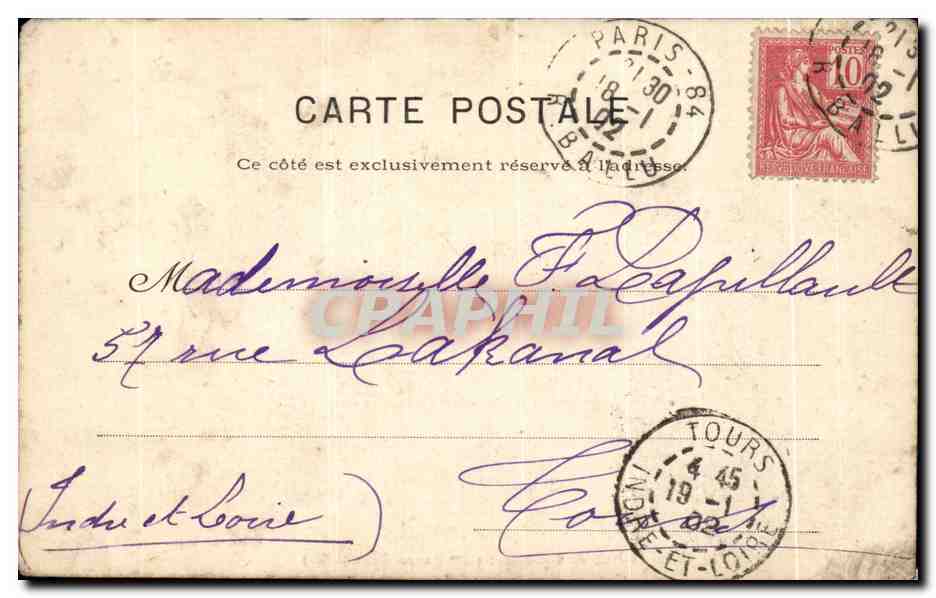 PARIS - 84
21 30
18 - 1
02
R. BALLU
POSTES
10
REPUBLIQUE FRANÇAISE
21 30
18 - 1
02
R. BALLU
CARTE POSTALE
Ce côté est exclusivement réservé à l'adresse.
Mademoiselle F. Papillault
CPAPHIL
57 rue Lakanal
Tours
(Indre et Loire)
TOURS
4 45
19 - 1
02
INDRE-ET-LOIRE